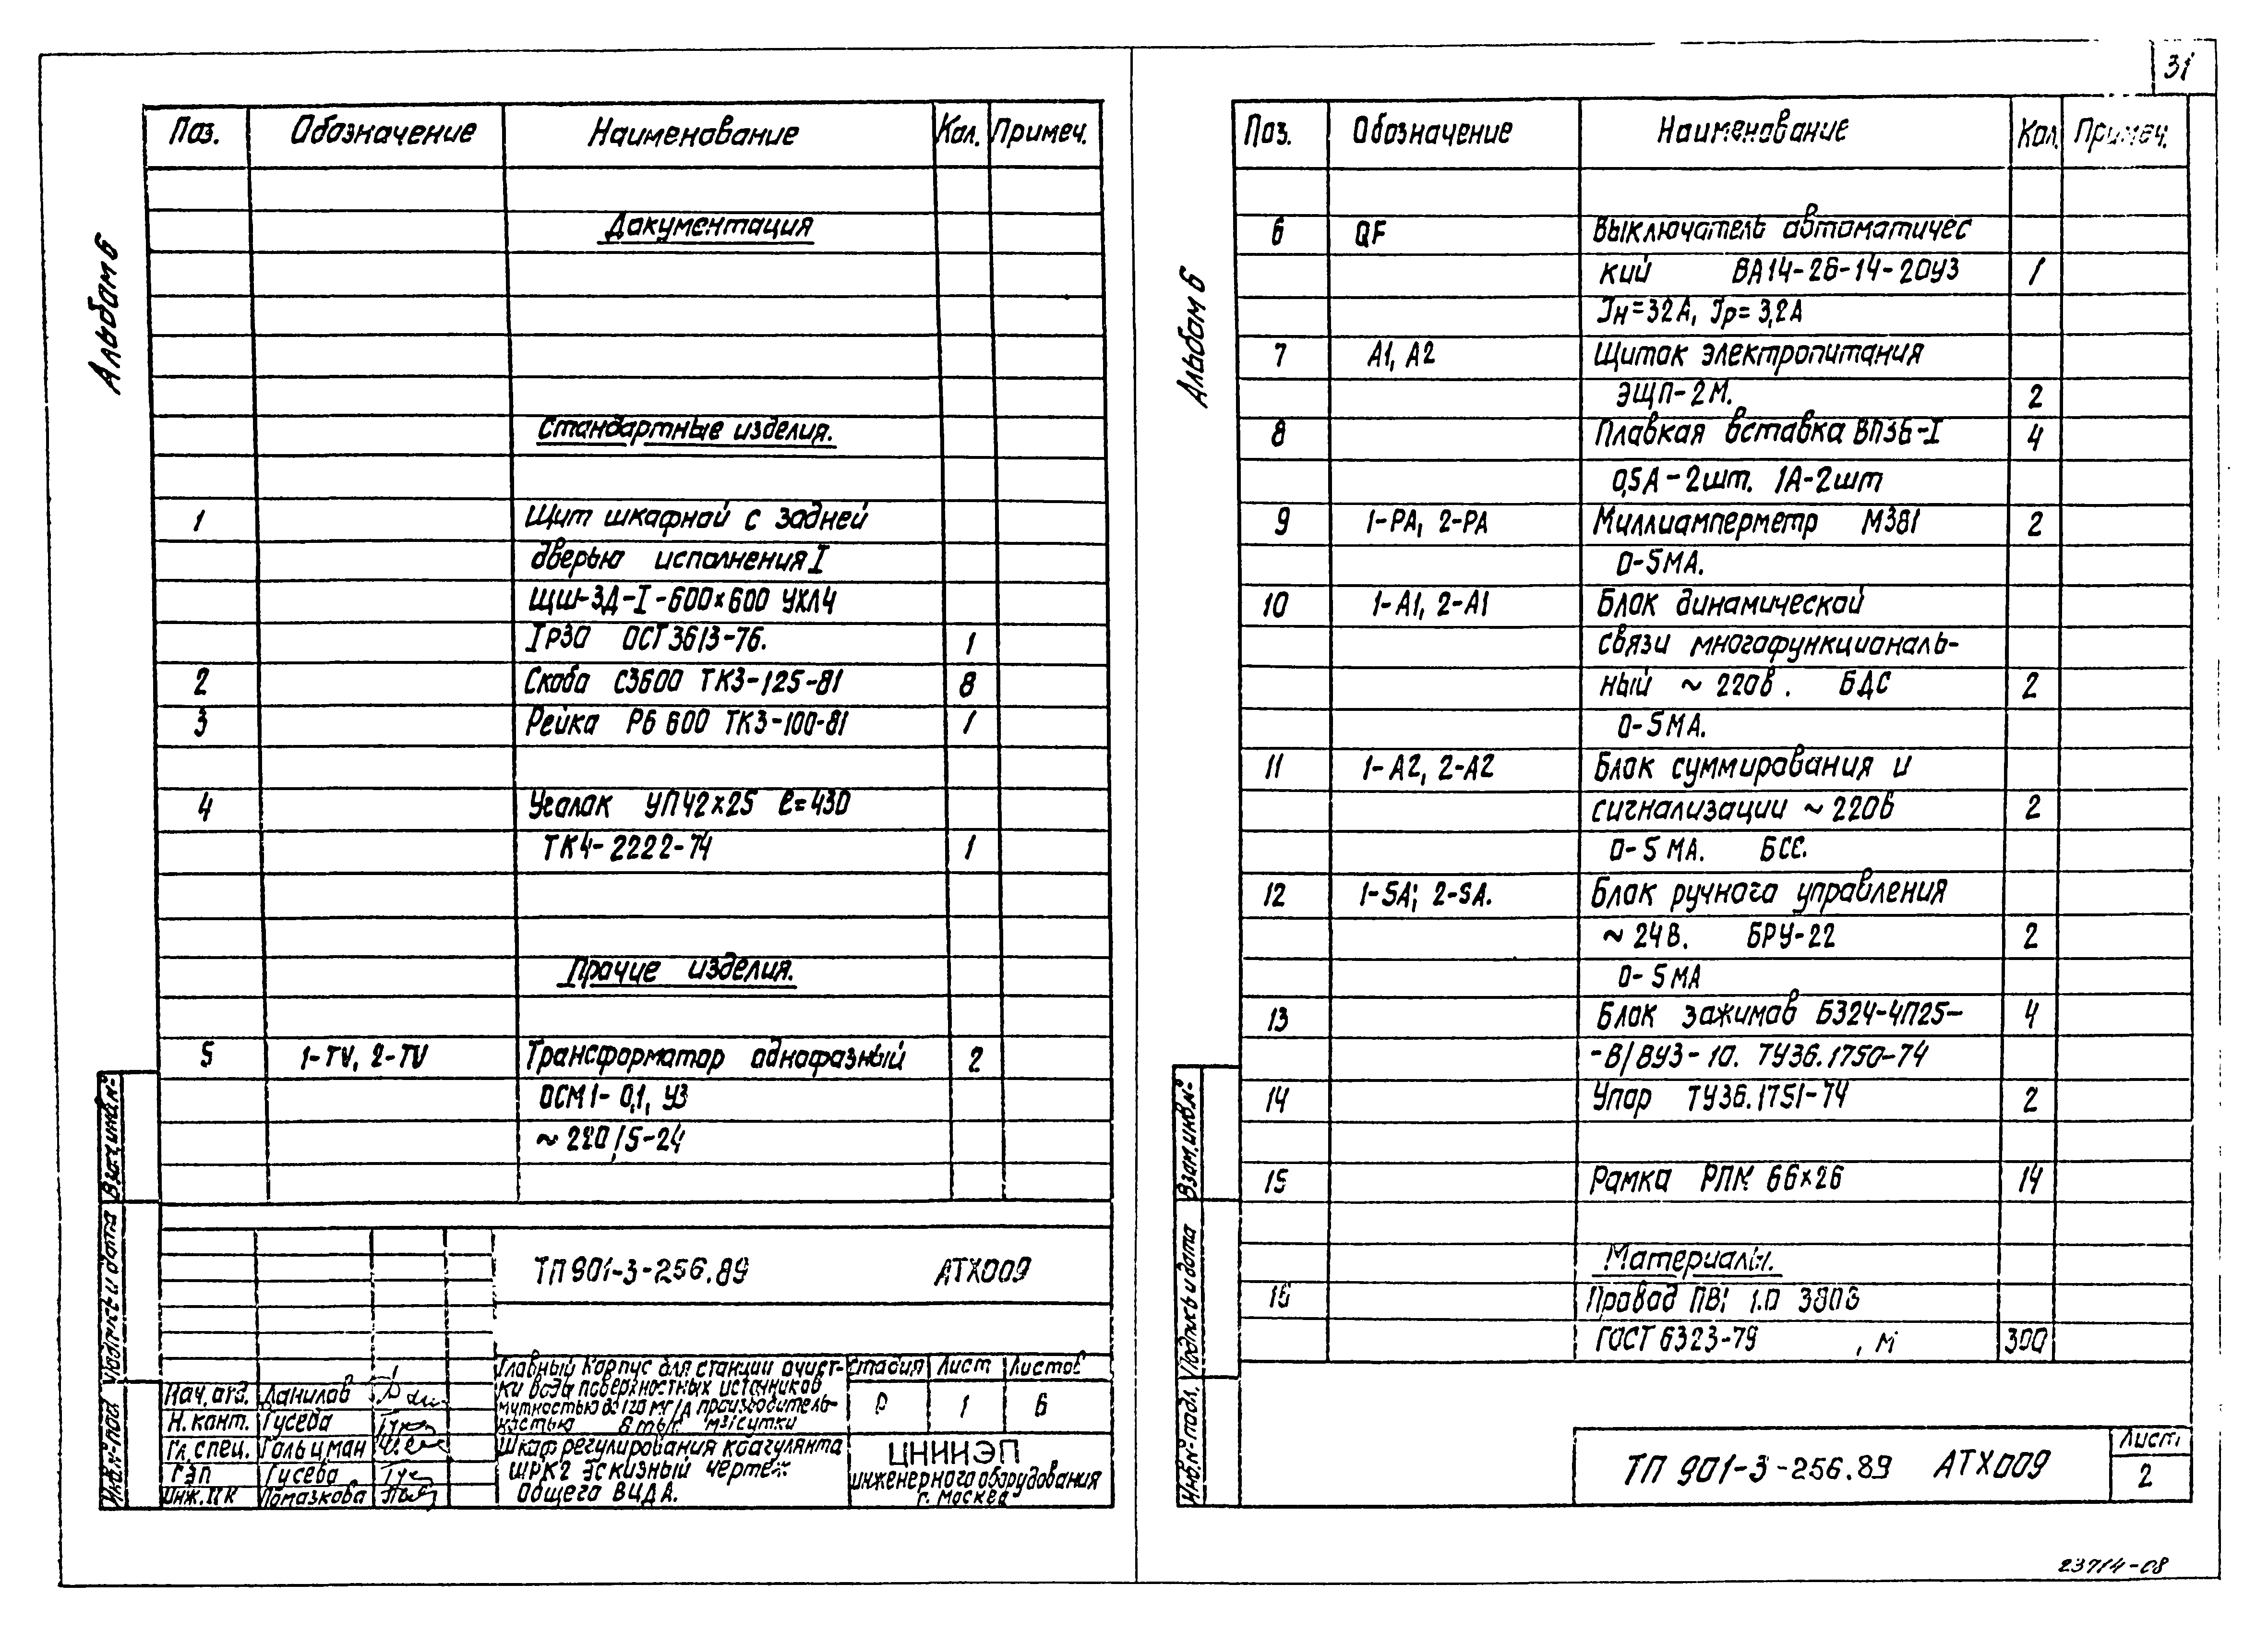 31
Альбом 6
Поз. Обозначение Наименование Кол. Примеч.
Документация
Стандартные изделия.
1 Щит шкафной с задней
дверью исполнения I
ЩШ-ЗД-I-600×600 УХЛ4
IP30 ОСТ3613-76. 1
2 Скоба С3600 ТК3-125-81 8
3 Рейка РБ 600 ТК3-100-81 1
4 Уголок УП42×25 ℓ=430
ТК4-2222-74 1
Прочие изделия.
5 1-TV, 2-TV Трансформатор однофазный 2
ОСМ1-0,1, У3
~220/5-24
ТП 901-3-256.89 АТХ009
Главный корпус для станции очист-
ки воды поверхностных источников
мутностью до 120 мг/л производитель-
ностью 8 тыс. м3/сутки
Стадия Лист Листов
Р 1 6
Нач. отд. Данилов
Н. конт. Гусева
Гл. спец. Гольцман
ГЭП Гусева
Инж. II К Помазкова
Шкаф регулирования коагулянта
ШРК2 Эскизный чертеж
общего вида.
ЦНИИЭП
инженерного оборудования
г. Москва
Взам. инв. №
Подпись и дата
Инв. № подл.
Альбом 6
Поз. Обозначение Наименование Кол. Примеч.
6 QF Выключатель автоматичес
кий ВА14-26-14-20У3 1
Iн=32А, Iр=3,2А
7 А1, А2 Щиток электропитания
ЭЩП-2М. 2
8 Плавкая вставка ВП3Б-I 4
0,5А-2шт. 1А-2шт
9 1-PA, 2-PA Миллиамперметр М381 2
0-5МА.
10 1-А1, 2-А1 Блок динамической
связи многофункциональ-
ный ~220в. БДС 2
0-5МА.
11 1-А2, 2-А2 Блок суммирования и
сигнализации ~220в 2
0-5 МА. БСС.
12 1-SA; 2-SA. Блок ручного управления
~24В. БРУ-22 2
0-5МА
13 Блок зажимов БЗ24-4П25- 4
-В/ВУ3-10. ТУ36.1750-74
14 Упор ТУ36.1751-74 2
15 Рамка РПМ 66×26 14
Материалы.
16 Провод ПВ1 1.0 380в
ГОСТ 6323-79 , м 300
ТП 901-3-256.89 АТХ009
Лист
2
Взам. инв. №
Подпись и дата
Инв. № подл.
23714-08